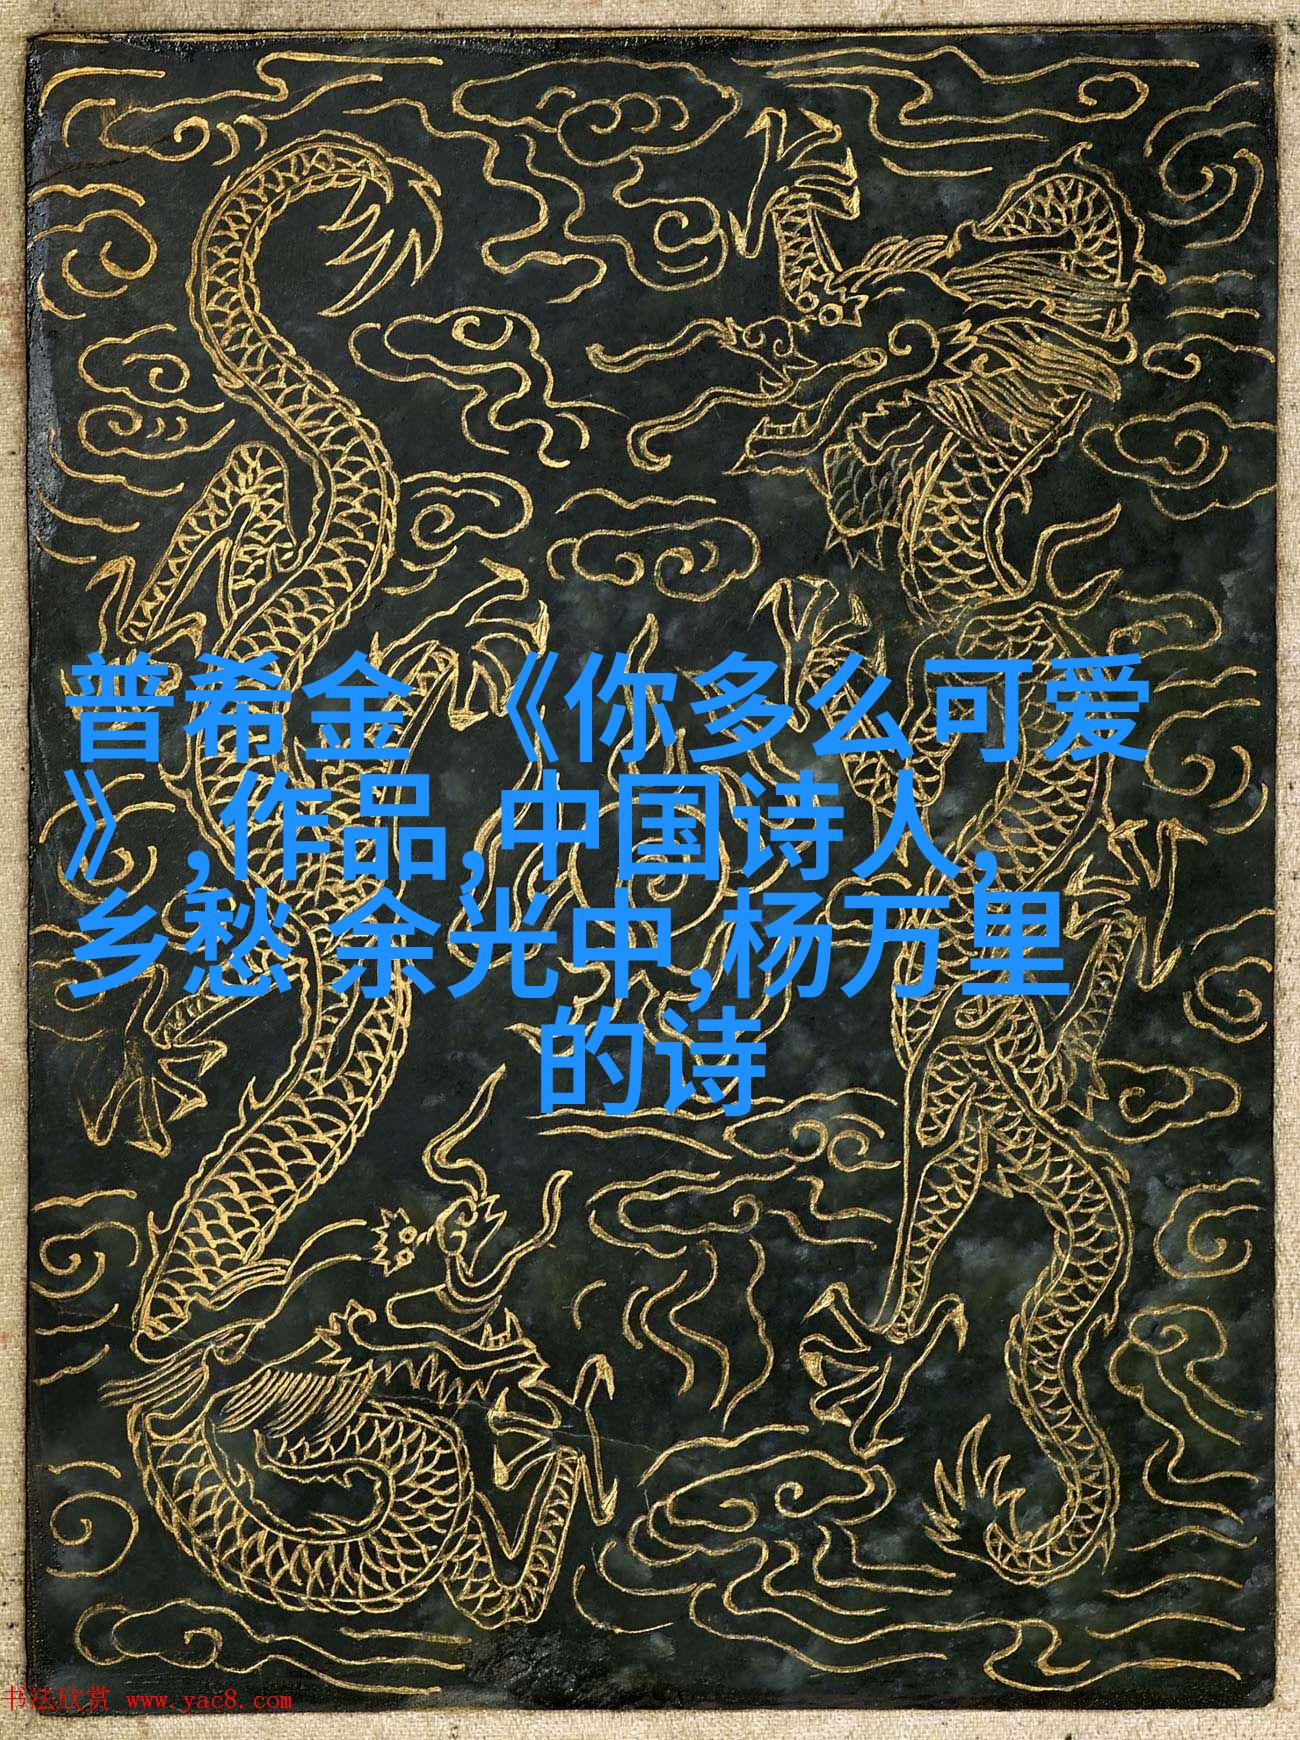 普希金 《你多么可爱
》,作品,中国诗人,
乡愁 余光中,杨万里
的诗
书法欣赏 www.yac8.com